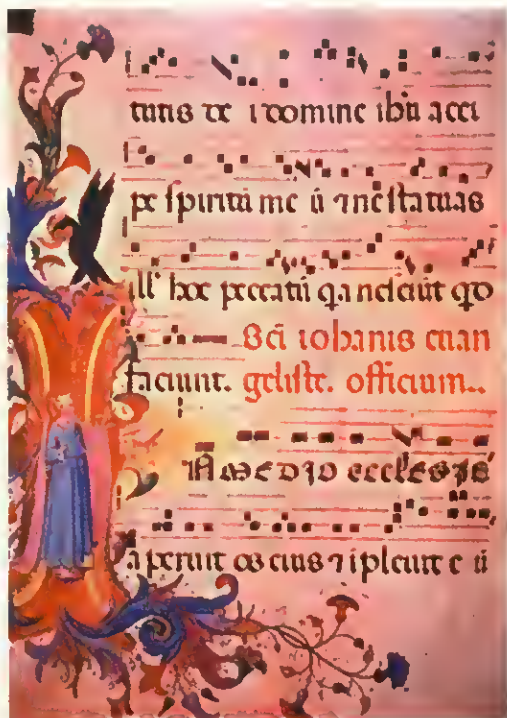 tutis de i domine ihu acci
pe spiritū me ū ⁊ ne statuas
ill' hoc peccatū q̇a nesciūt qd
Sci iohanis euan
faciunt. geliste. officium..
N medio ecclesie
aperuit os eius ⁊ īpleuit e ū